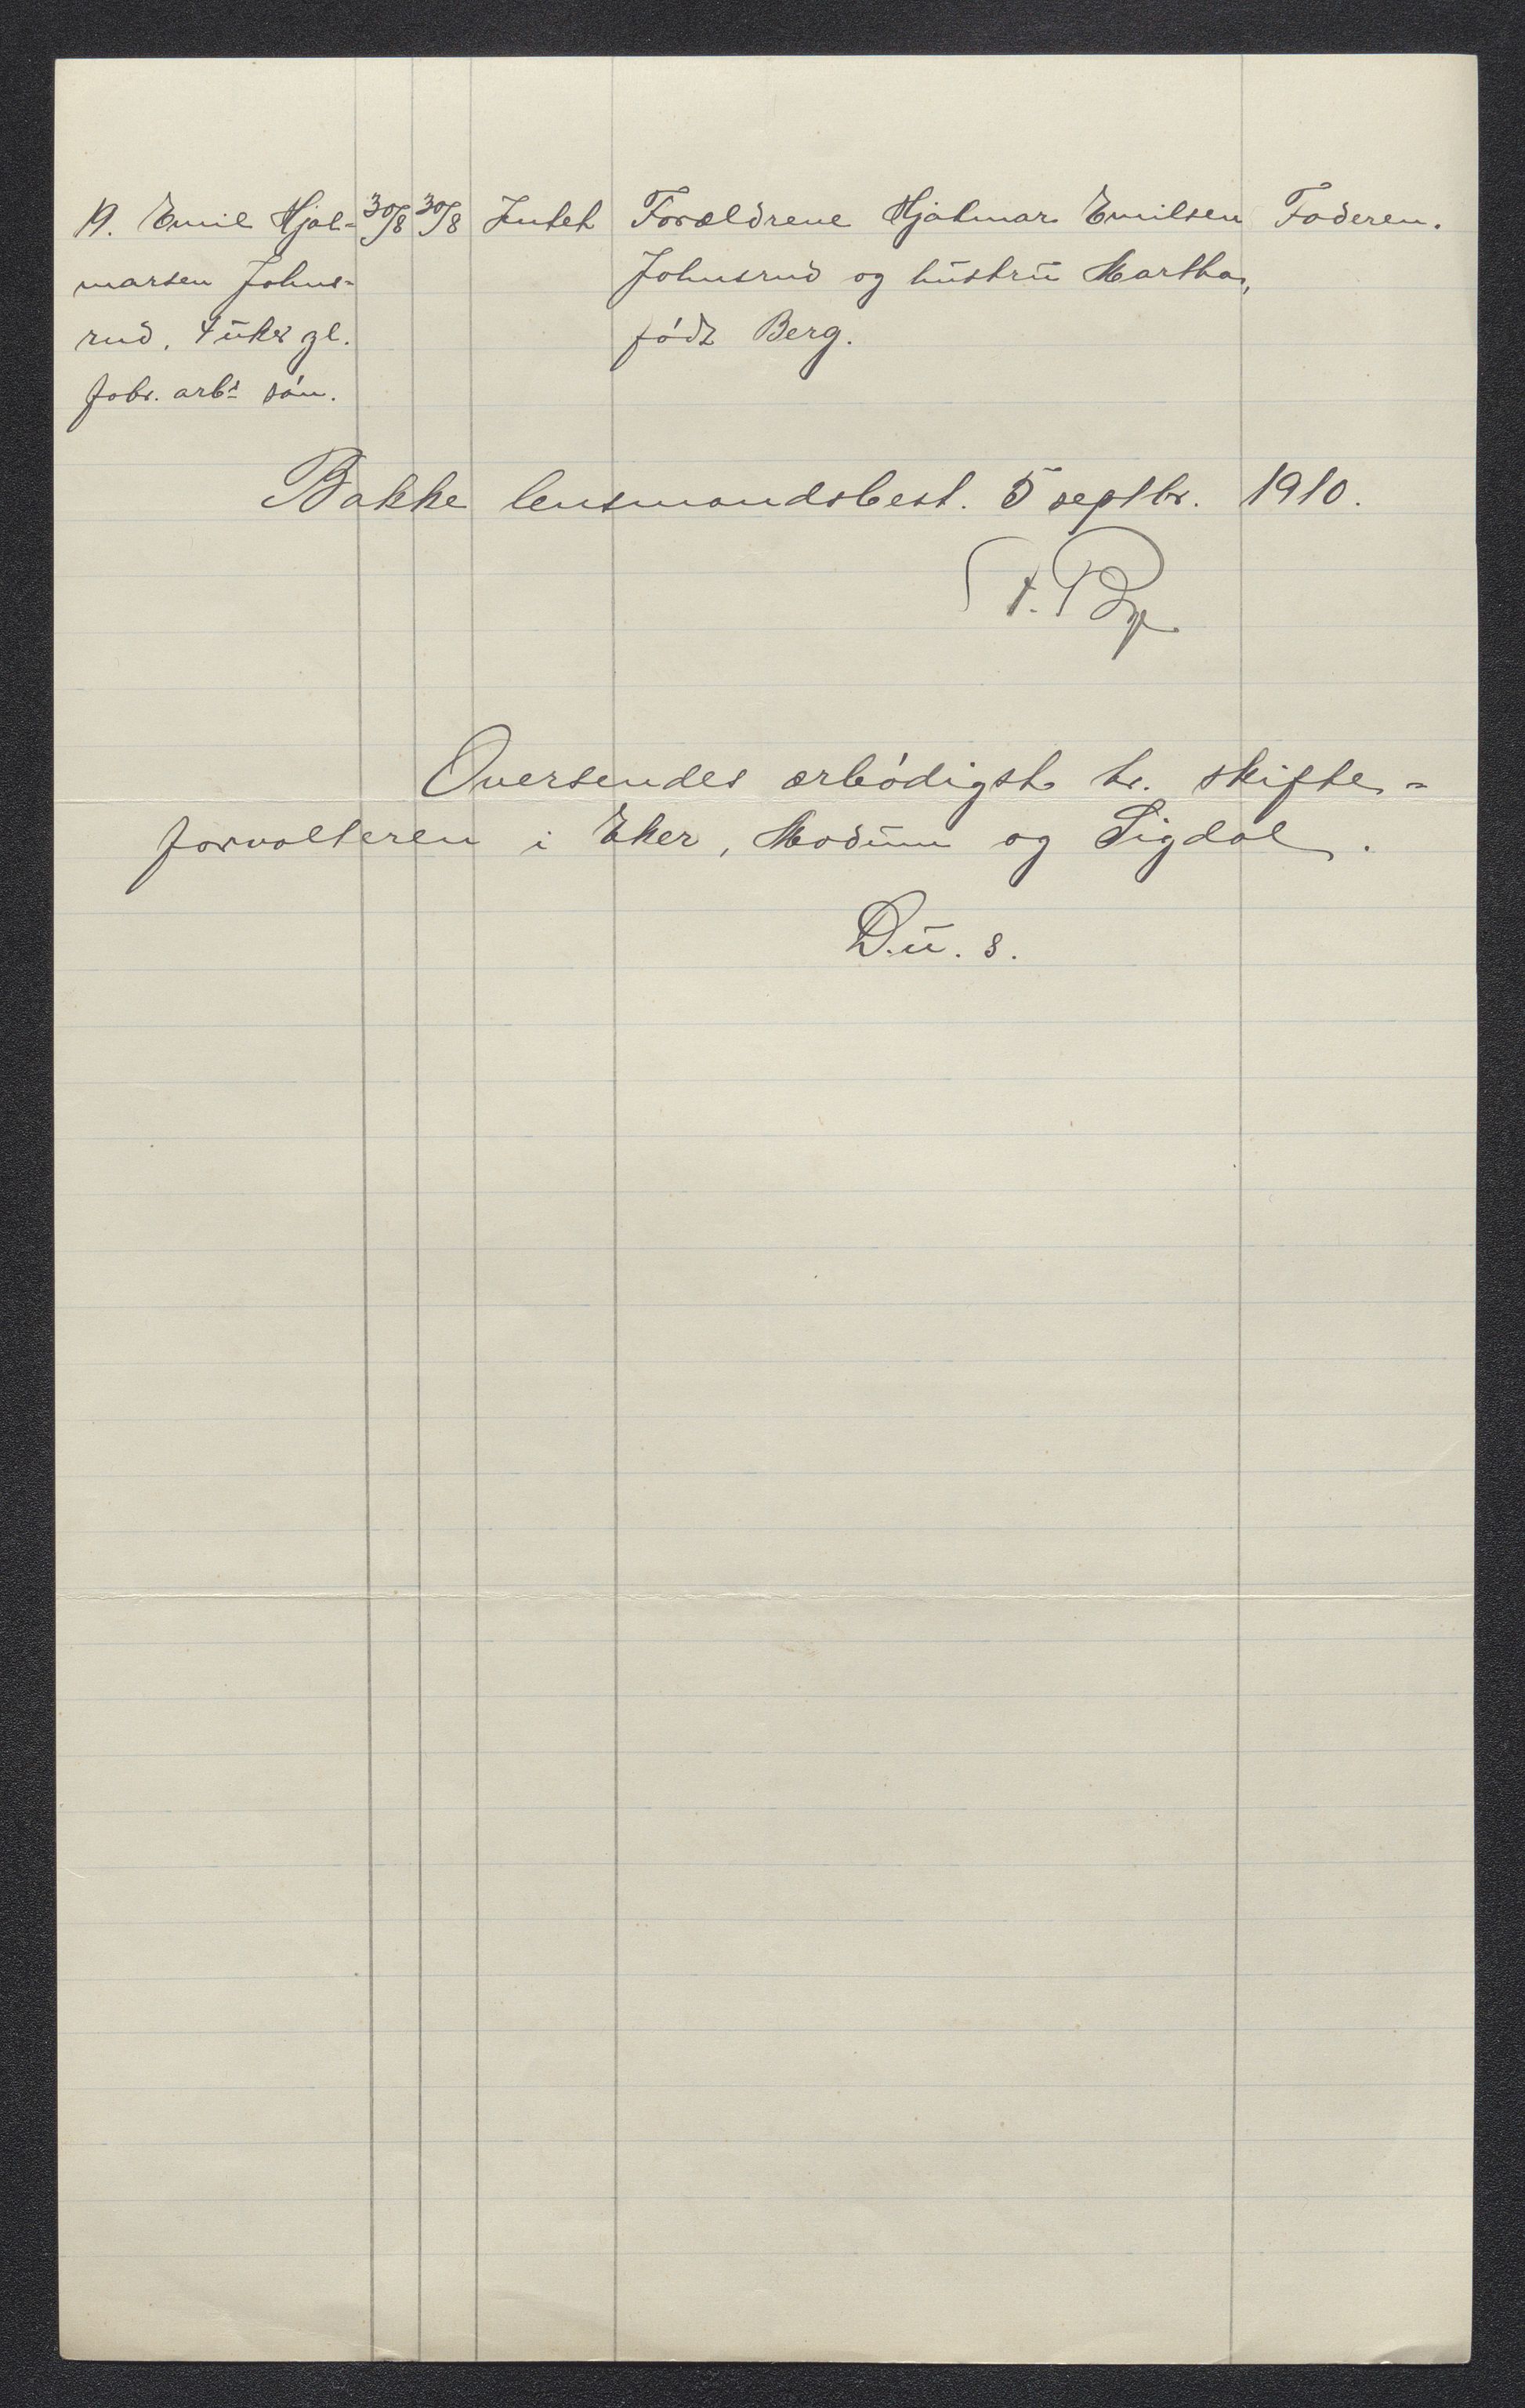 19. Emil Hjal= 30/8 30/8 Intet Forældrene Hjalmar Emilsen Faderen.
marsen Johns= Johnsrud og hustru Martha,
rud. 4 uker gl. født Berg.
fabr. arbs søn.
Bakke lensmandsbest. 5 septbr. 1910.
Oversendes ærbødigst hr. skifte=
forvalteren i Eker, Modum og Sigdal.
D. u. s.